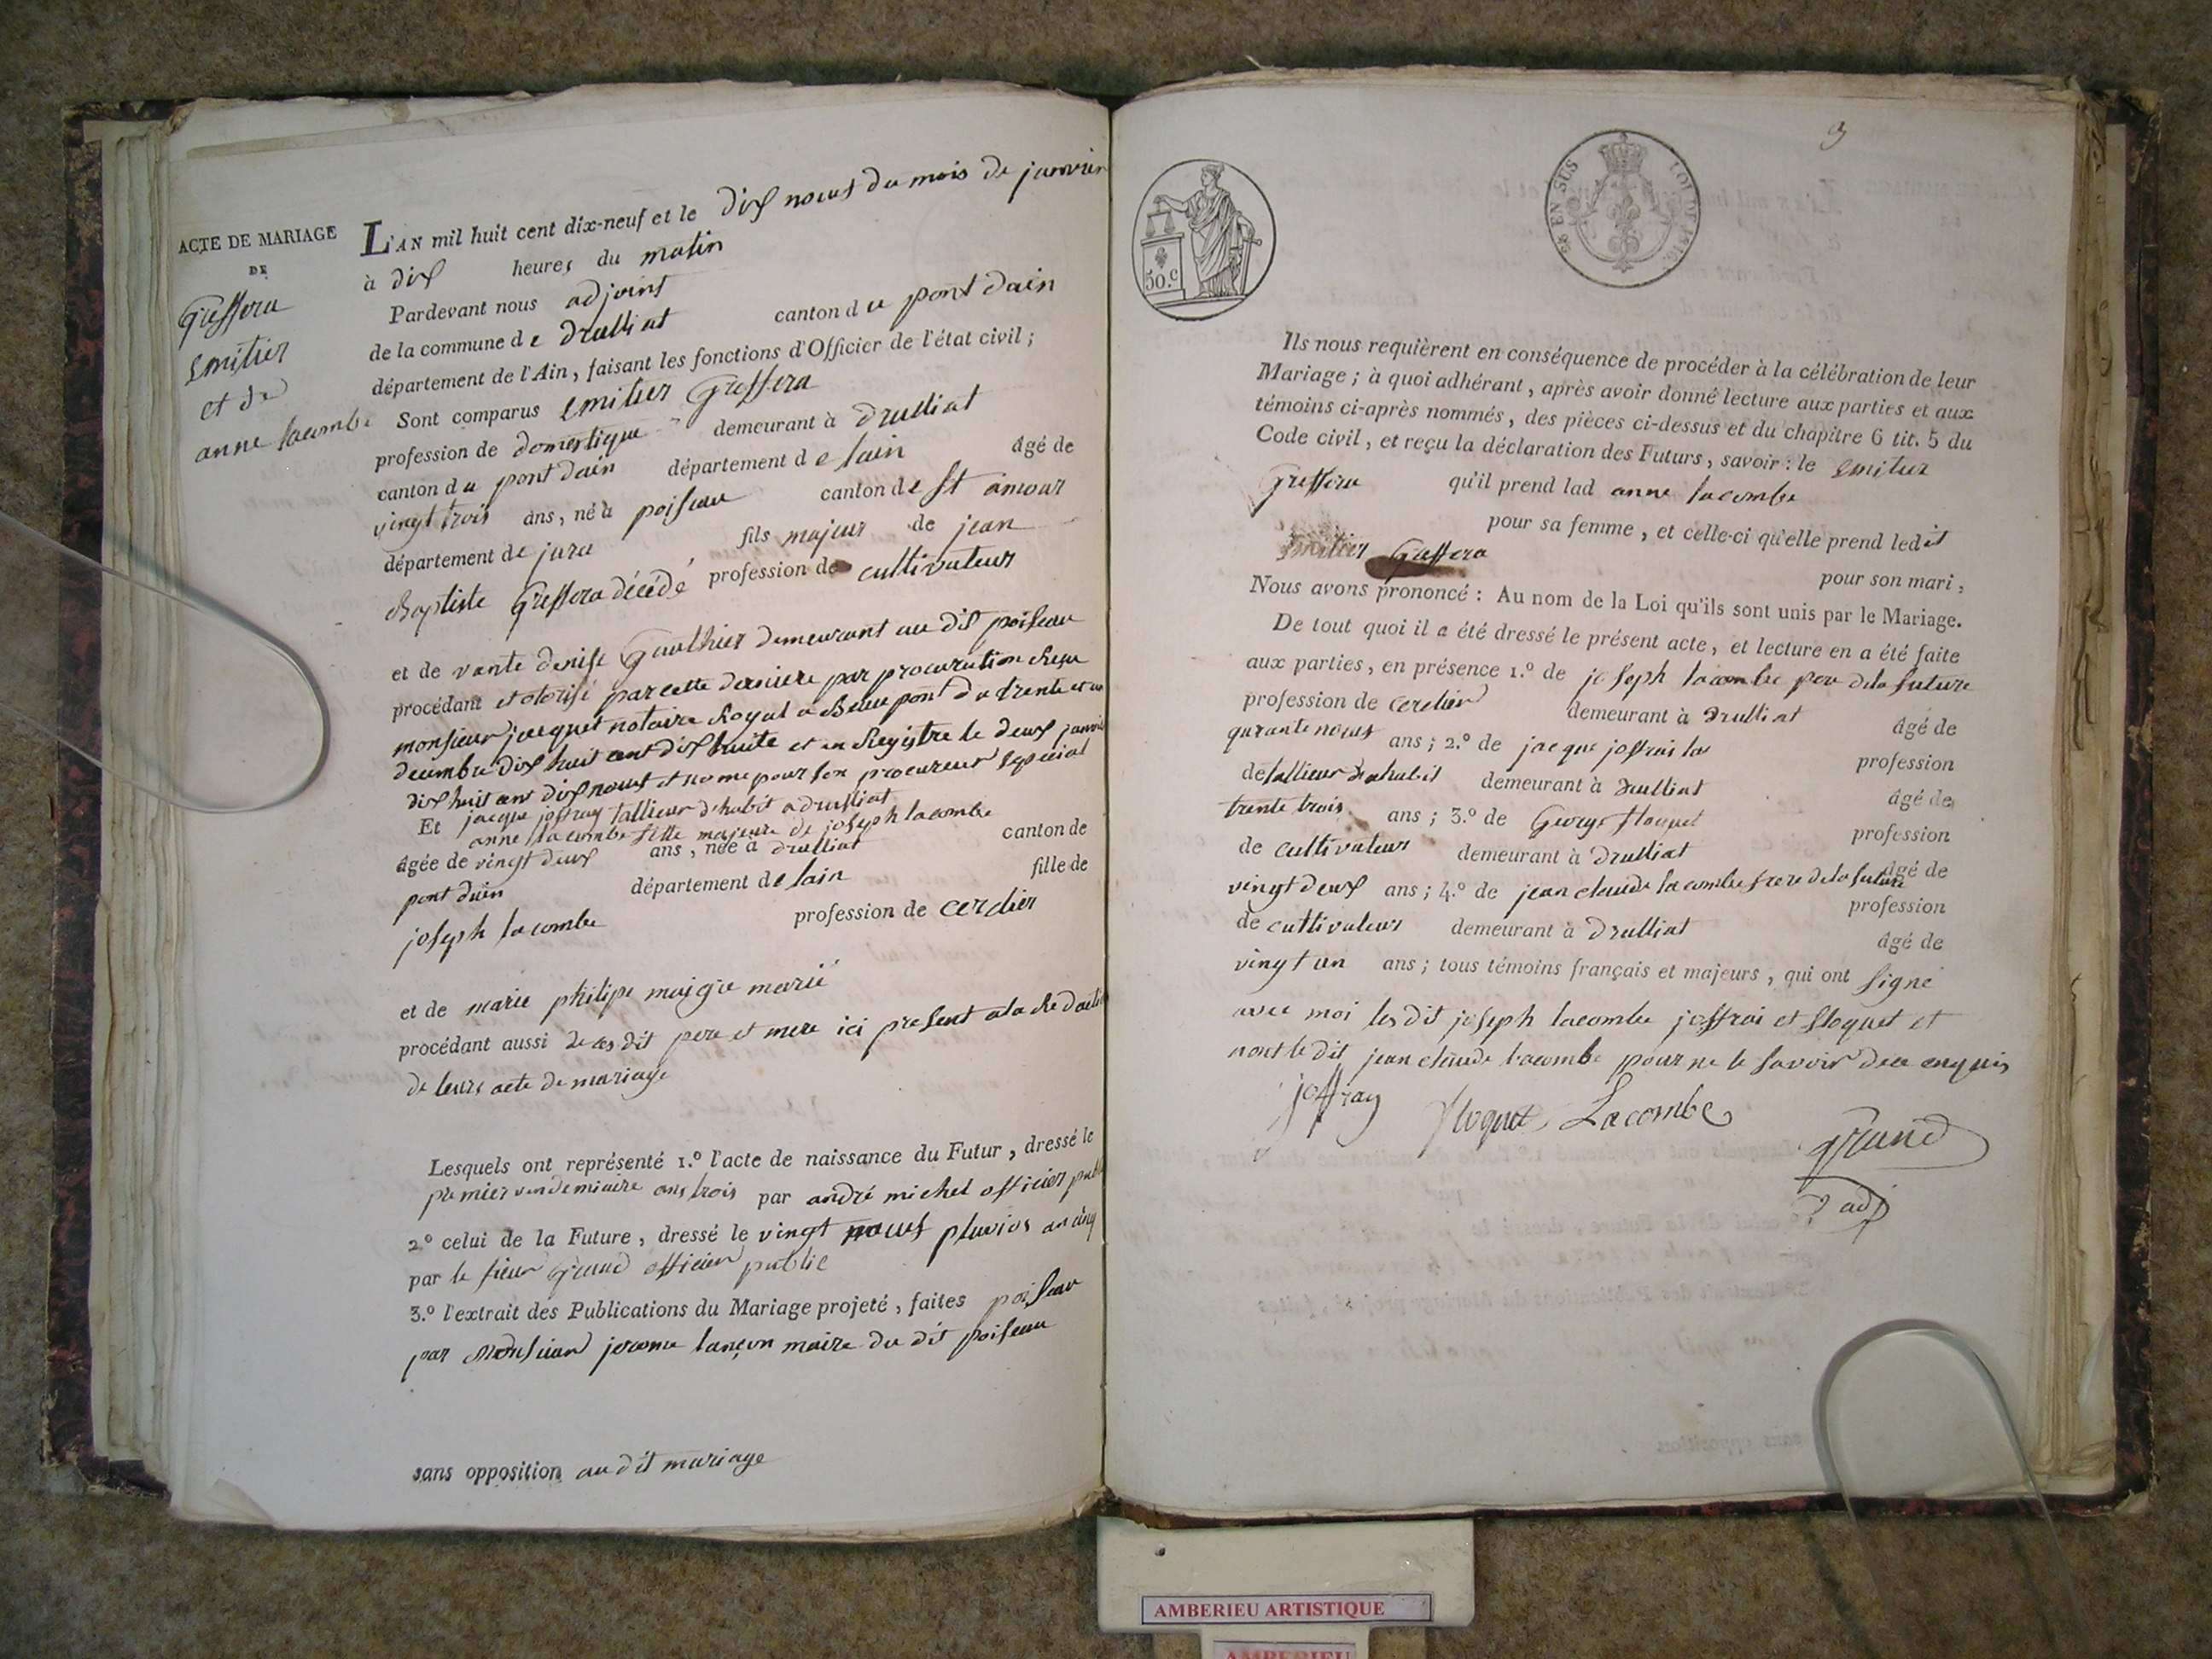 ACTE DE MARIAGE
DE
Greffera
Emilier
et de
anne lacombe
L'AN mil huit cent dix-neuf et le dix neuf du mois de janvier
à dix heures du matin
Pardevant nous adjoint
de la commune de Drulliat canton du pont dain
département de l'Ain, faisant les fonctions d'Officier de l'état civil;
Sont comparus Emilier Greffera
profession de domestique demeurant à Drulliat
canton du pont dain département de lain âgé de
vingt trois ans, né à poiseau canton de St amour
département de jura fils majeur de jean
Baptiste Greffera décédé profession de cultivateur
et de vante denise Gauthier demeurant au dit poiseau
procédant et otorisé par cette derniere par procuration Resu
monsieur jacquet notaire Royal a Beaupont du trente et un
decembre dix huit cent dix huite et en Registre le deux janvie
dix huit cent dix neuf et nome pour son procureur special
Et jacque joffray tallieur d'habit a drulliat
anne lacombe fille majeure de joseph lacombe
âgée de vingt deux ans, née à drulliat canton de
pont dain département de lain fille de
joseph lacombe profession de cerclier
et de marie philipe maigre marié
procédant aussi de ces dit pere et mere ici present
de leurs acte de mariage
Lesquels ont représenté 1.º l'acte de naissance du Futur, dressé le
premier vendemiaire ans trois par andré michel officier publ
2º celui de la Future, dressé le vingt neuf pluvios an cinq
par le sieur Grand officier public
3.º l'extrait des Publications du Mariage projeté, faites poiseau
par Monsieur jerome lançon maire du dit poiseau
sans opposition au dit mariage
3
50.c
EN SUS
LOI DE 1816.
Ils nous requièrent en conséquence de procéder à la célébration de leur
Mariage; à quoi adhérant, après avoir donné lecture aux parties et aux
témoins ci-après nommés, des pièces ci-dessus et du chapitre 6 tit. 5 du
Code civil, et reçu la déclaration des Futurs, savoir: le Emilier
Greffera qu'il prend lad anne lacombe
pour sa femme, et celle-ci qu'elle prend ledit
Emilier Greffera pour son mari,
Nous avons prononcé: Au nom de la Loi qu'ils sont unis par le Mariage.
De tout quoi il a été dressé le présent acte, et lecture en a été faite
aux parties, en présence 1.º de joseph lacombe per dela future
profession de cerclier demeurant à Drulliat âgé de
qurante neuf ans; 2.º de jacque joffrai profession
de tallieur dahabit demeurant à Drulliat âgé de
trente trois ans; 3.º de George floquet profession
de cultivateur demeurant à Drulliat âgé de
vingt deux ans; 4.º de jean claude lacombe frere dela future profession
de cultivateur demeurant à Drulliat âgé de
vingt un ans; tous témoins français et majeurs, qui ont signé
avec moi les dit joseph lacombe joffrai et floquet et
nont le dit jean claude lacombe pour ne le savoir dece enquis
joffray floquet Lacombe
Grand
adj
AMBERIEU ARTISTIQUE
AMBERIEU